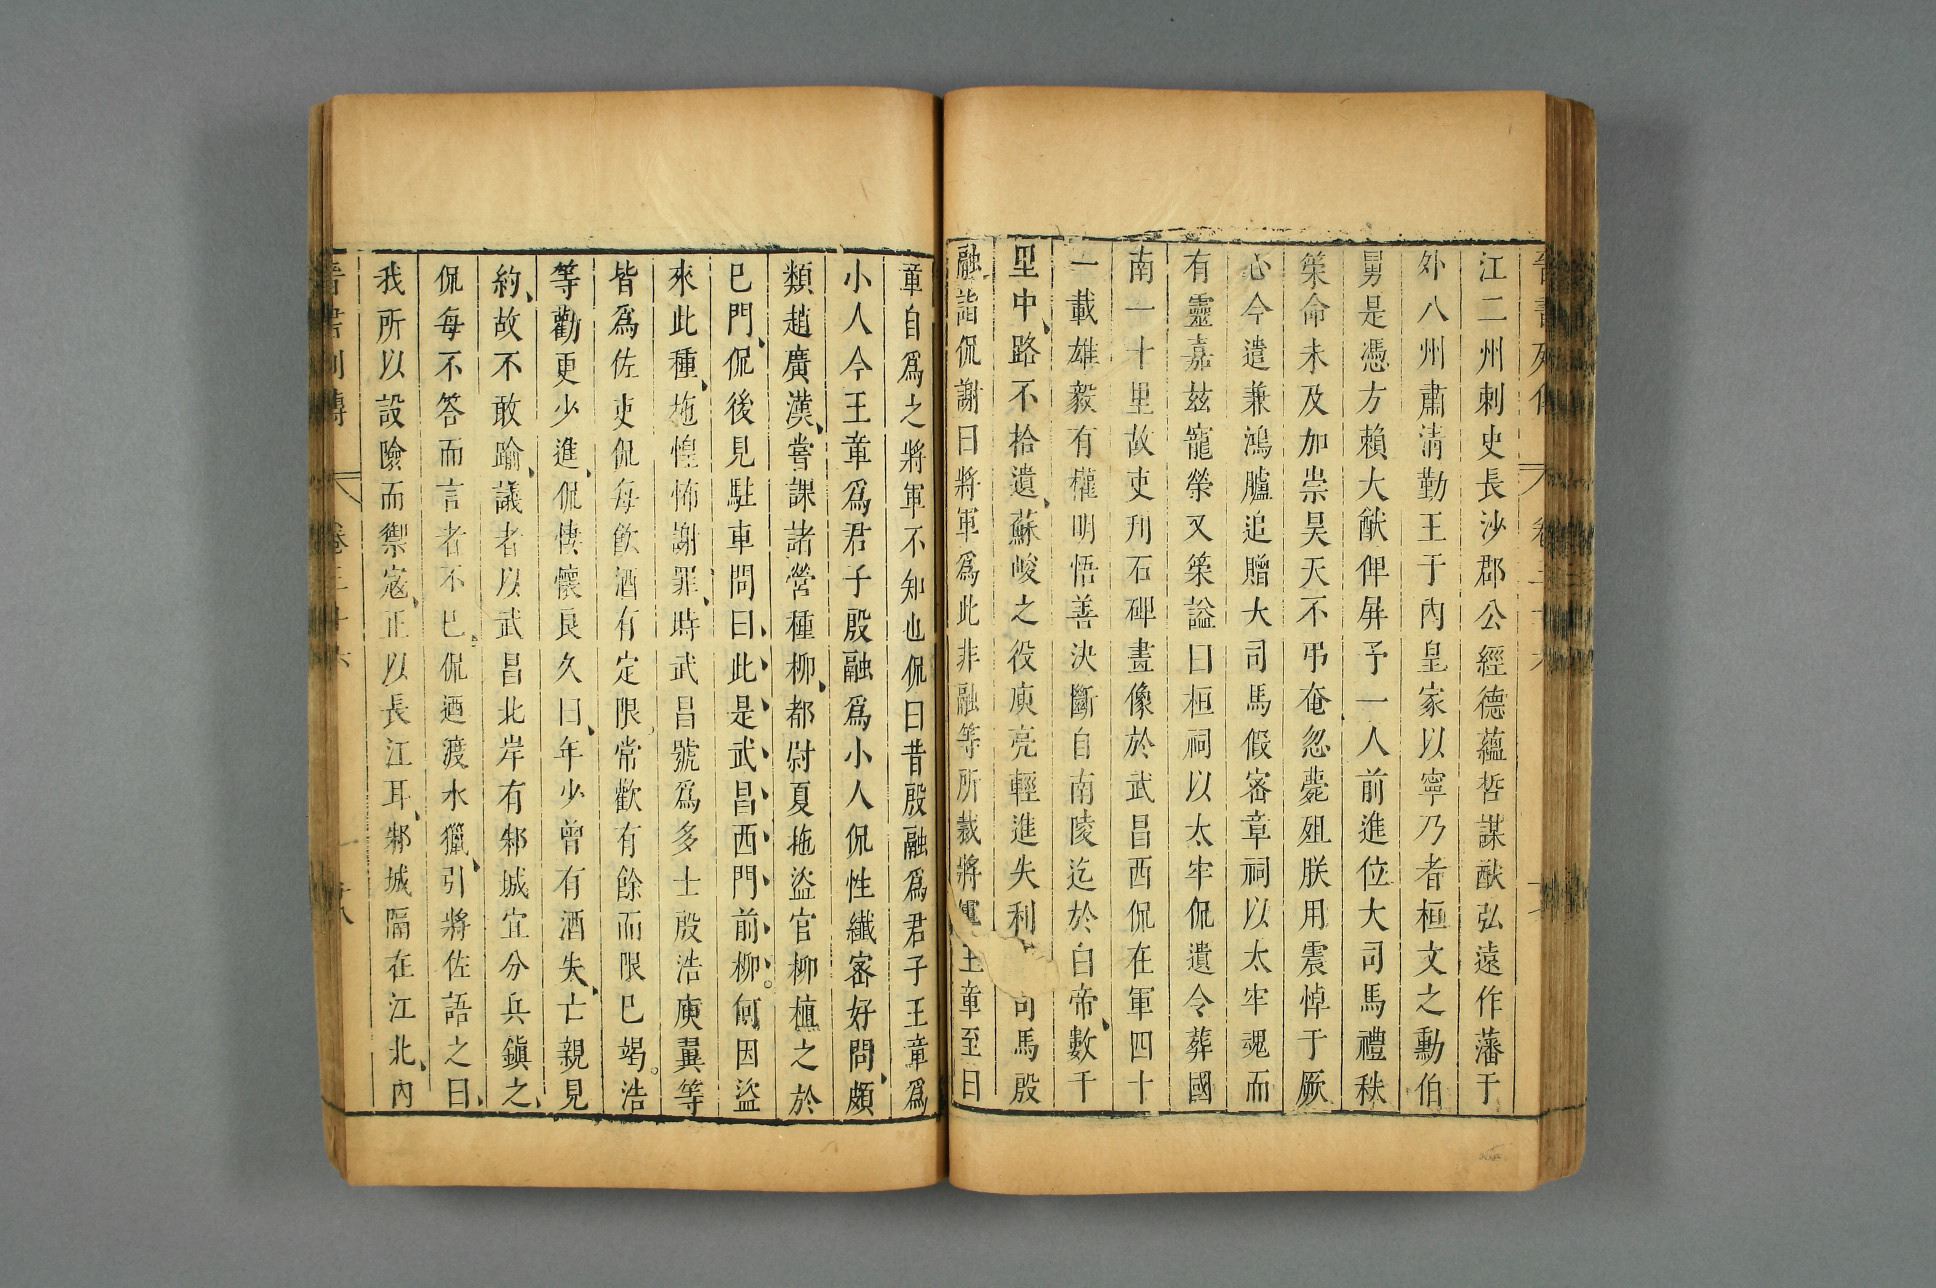 晉書列傳 卷三十六
江二州刺史長沙郡公經德蘊哲謀猷弘遠作藩于
外八州肅清勤王于內皇家以寧乃者桓文之勳伯
舅是憑方賴大猷俾屏予一人前進位大司馬禮秩
策命未及加崇昊天不弔奄忽薨殂朕用震悼于厥
心今遣兼鴻臚追贈大司馬假密章祠以太牢魂而
有靈嘉玆寵榮又策謚曰桓祠以太牢侃遺令葬國
南二十里故吏刋石碑畫像於武昌西侃在軍四十
一載雄毅有權明悟善決斷自南陵迄於白帝數千
里中路不拾遺蘇峻之役庾亮輕進失利司馬殷
融詣侃謝曰將軍爲此非融等所裁將軍王章至曰
章自爲之將軍不知也侃曰昔殷融爲君子王章爲
小人今王章爲君子殷融爲小人侃性纖密好問頗
類趙廣漢嘗課諸營種柳都尉夏施盜官柳植之於
已門侃後見駐車問曰此是武昌西門前柳何因盜
來此種施惶怖謝罪時武昌號爲多士殷浩庾翼等
皆爲佐吏侃每飲酒有定限常歡有餘而限已竭浩
等勸更少進侃悽懷良久曰年少曾有酒失亡親見
約故不敢踰議者以武昌北岸有邾城宜分兵鎭之
侃每不答而言者不已侃迺渡水獵引將佐語之曰
我所以設險而禦寇正以長江耳邾城隔在江北內
晉書列傳 卷三十六 十八